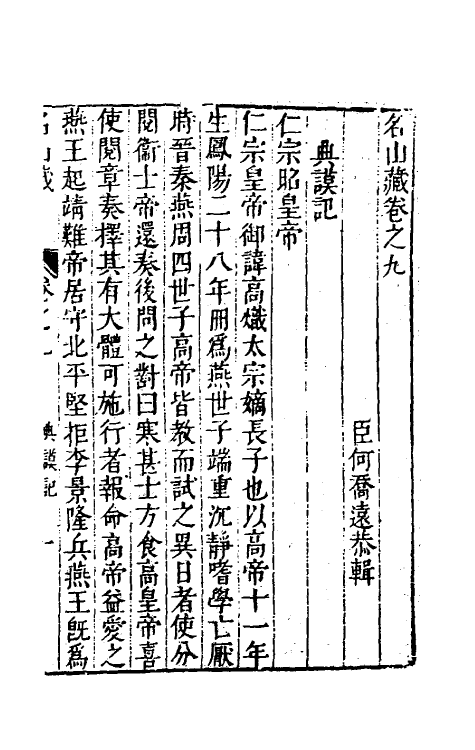 名山藏卷之九
臣何喬遠恭輯
典謨記
仁宗昭皇帝
仁宗皇帝御諱高熾太宗嫡長子也以高帝十一年
生鳳陽二十八年冊爲燕世子端重沉靜嗜學亡厭
時晉秦燕周四世子高帝皆教而試之異日者使分
閱衞士帝還奏後問之對曰寒甚士方食高皇帝喜
使閱章奏擇其有大體可施行者報命高帝益愛之
燕王起靖難帝居守北平堅拒李景隆兵燕王旣爲
名山藏 卷之九 典謨記 一